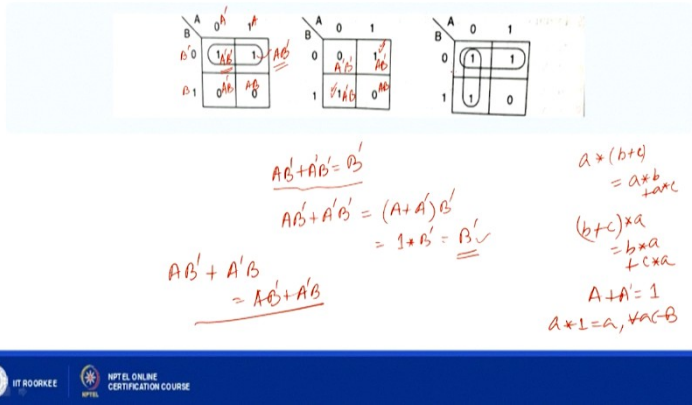 A 0 A' 1 A
B
B' 0 1 A'B' 1 AB'
B 1 0 A'B 0 AB
A 0 1
B
0 0 A'B' 1 AB'
1 1 A'B 0 AB
A 0 1
B
0 1 1
1 1 0
AB' + A'B' = B'
AB' + A'B' = (A + A') B'
= 1 * B' = B'
AB' + A'B
= AB' + A'B
a * (b + c)
= a * b
+ a * c
(b + c) * a
= b * a
+ c * a
A + A' = 1
a * 1 = a, ∀ a ∈ B
IIT ROORKEE
NPTEL
NPTEL ONLINE
CERTIFICATION COURSE